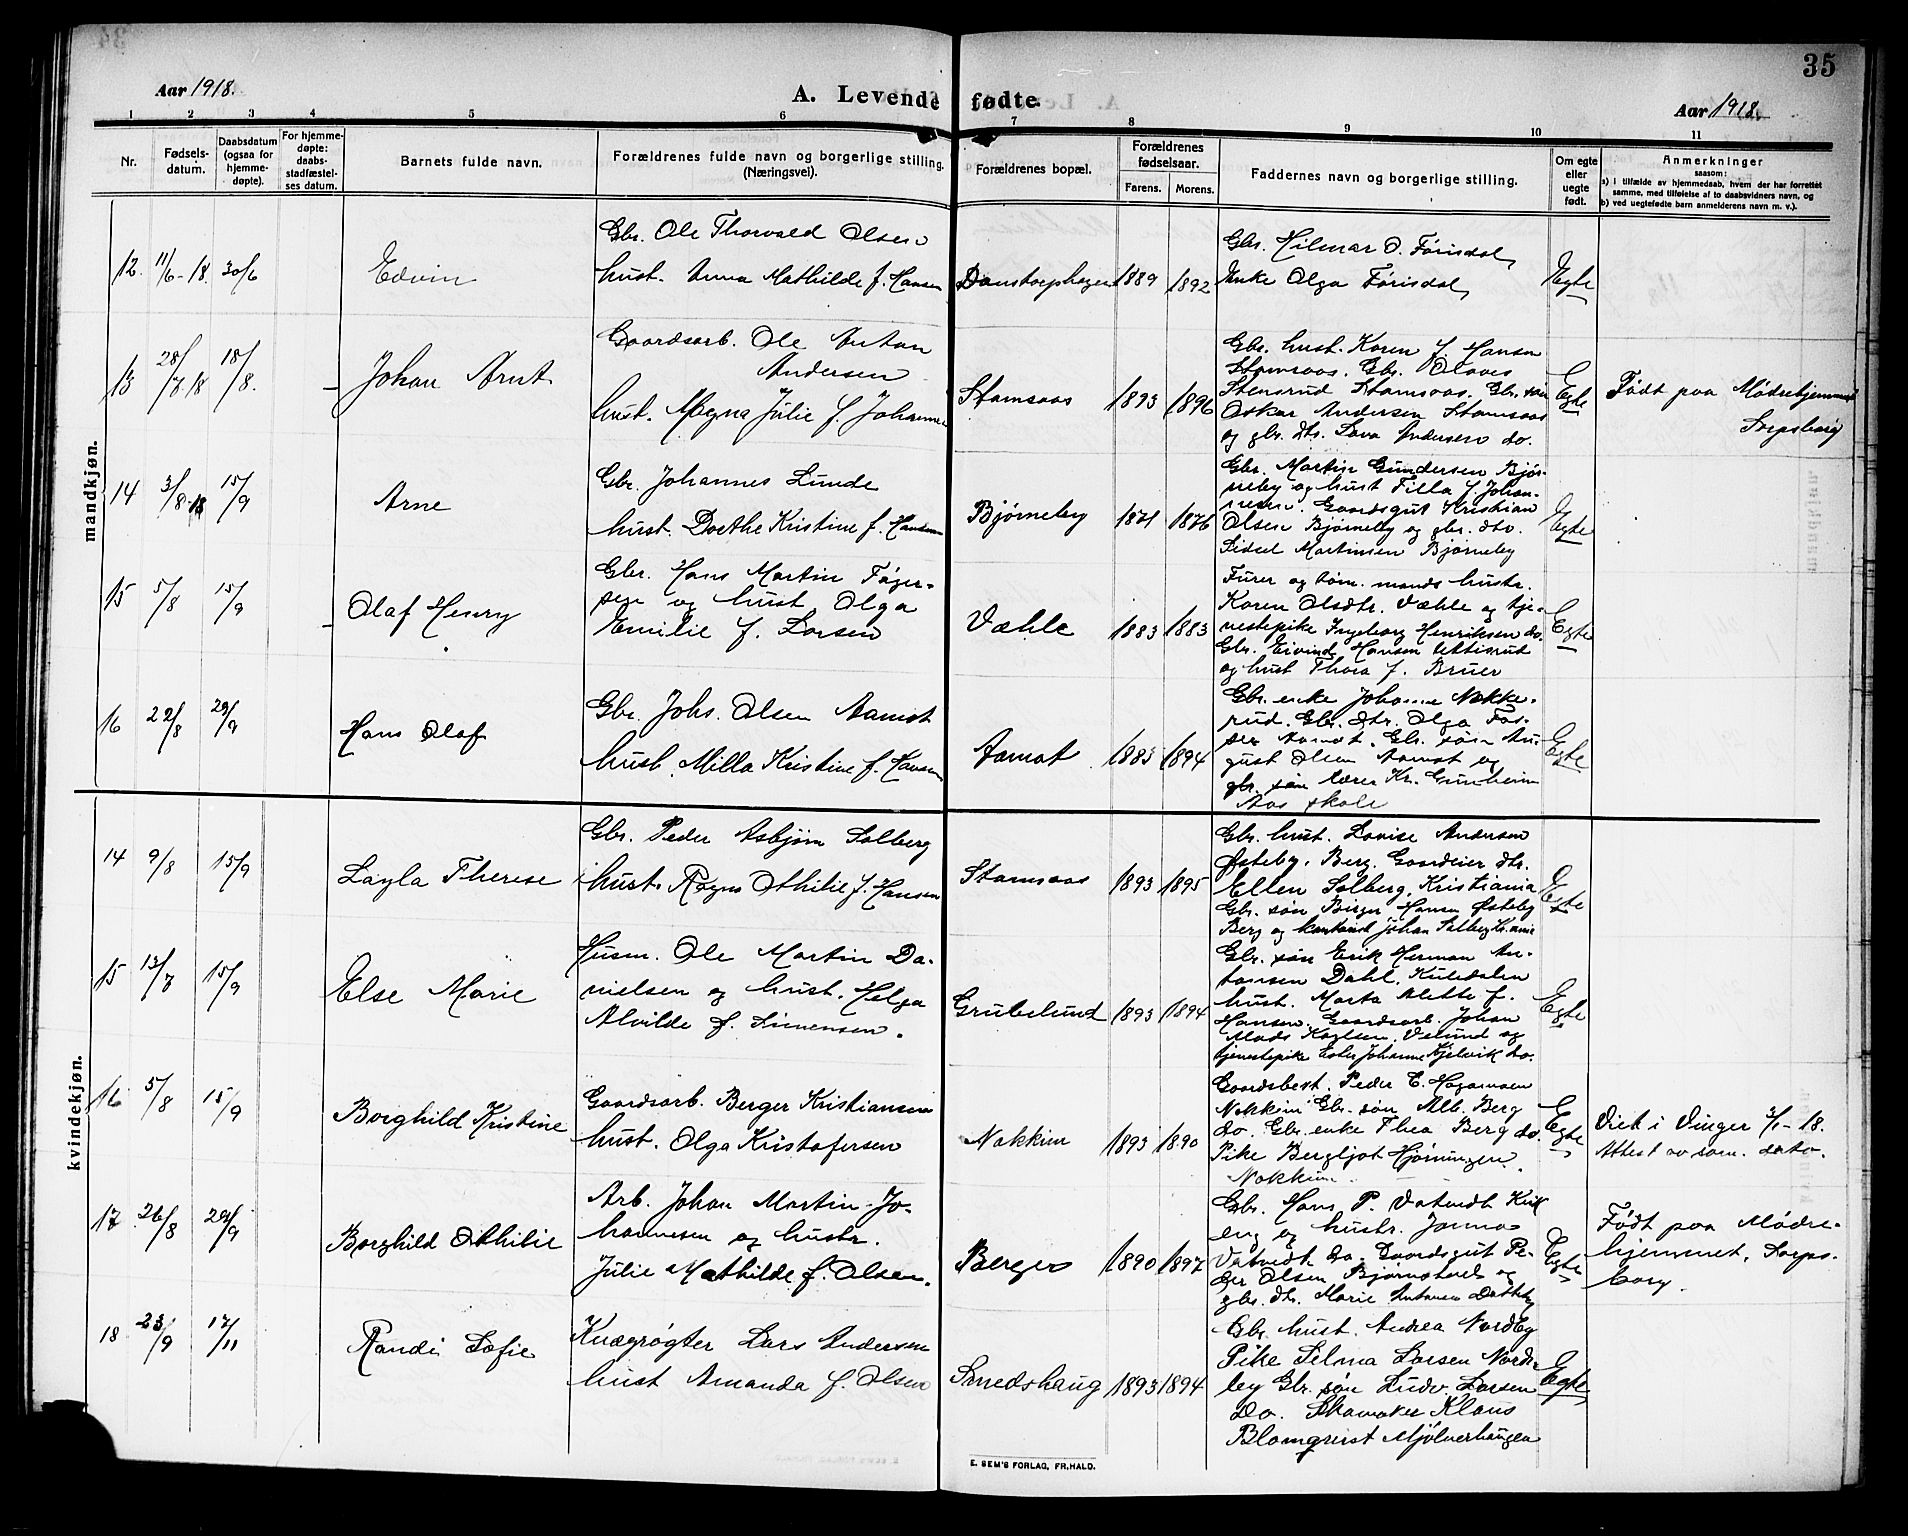 35
Aar 1918.
A. Levende fødte.
Aar 1918.
1 2 3 4 5 6 7 8 9 10 11
Nr.
Fødsels-
datum.
Daabsdatum
(ogsaa for
hjemme-
døpte).
For hjemme-
døpte:
daabs-
stadfæstel-
ses datum.
Barnets fulde navn.
Forældrenes fulde navn og borgerlige stilling.
(Næringsvei).
Forældrenes bopæl.
Forældrenes
fødselsaar.
Farens. Morens.
Faddernes navn og borgerlige stilling.
Om egte
eller
uegte
født.
Anmerkninger
saasom:
a) i tilfælde av hjemmedaab, hvem der har forrettet
samme, med tilføielse af to daabsvidners navn, og
b) ved uegtefødte barn anmelderens navn m. v.).
mandkjøn.
12. 11/6-18. 30/6
Edvin
Gbr. Ole Thorvald Olsen
hust. Anna Mathilde f. Hansen
Danstorphagen 1889 1892
Gbr. Hilmar O. Førisdal,
Enke Olga Førisdal,
Egte
13 28/7 18 18/8.
Johan Arnt
Gaardsarb. Ole Anton
Andersen
hust. Magna Julie f. Johannesen
Stamsaas 1893 1896
Gbr. hust. Karen f. Hansen
Stamsaas. Gbr. Olaves
Stensrud Stamsaas. Gbr. søn
Oskar Andersen Stamsaas
og gbr. dtr. Lava Andersen do.
Egte
Født paa Mødrehjemmet
Sarpsborg
14 3/8-18 15/9
Arne
Gbr. Johannes Lunde
hust. Dorthe Kristine f. Hansen
Bjørneby 1871 1876
Gbr. Martin Gundersen Bjør-
neby og hust Tilla f Johan-
nesen. Gaardsgut Kristian
Olsen Bjørneby og gbr. dtr.
Lidsel Martinsen Bjørneby
Egte
15 5/8 15/9
Olaf Henry
Gbr. Hans Martin Tøger-
sen og hust Olga
Emilie f. Larsen
Væhle 1883 1883
Furer og tøm. mands hustr.
Karen Olsdtr. Væhle og tje-
nestepike Ingeborg Henriksen do.
Gbr. Eivind Hansen
og hust Thora f. Bruer
Egte
16 22/8 29/9
Hans Olaf
Gbr. Johs. Olsen Aamot
hust. Milla Kristine f. Hansen
Aamot 1883 1894
Gbr. enke Johanne Nøkke-
rud. Gbr. dtr. Olga
Aamot. Gbr. søn Au-
gust Olsen Aamot og
gbr. søn lærer Kr. Grunheim
Aas skole
Egte
kvindekjøn.
14 9/8 15/9
Layla Therese
Gbr. Peder Asbjørn Solberg
hust. Ragna Othilie f. Hansen
Stamsaas 1893 1895
Gbr. hust. Lovise Andersen
Østeby, Berg. Gaardeier dtr.
Ellen Solberg, Kristiania
Gbr. søn Birger Hansen Østeby
Berg og kontorist Johan Solberg Kr.ania
Egte
15 13/7 15/9
Else Marie
Husm. Ole Martin Da-
nielsen og hust. Helga
Alvilde f. Simensen.
Grubelund 1893 1894
Gbr. søn Erik Herman An-
tonsen Dahl. Kuledalen
hust. Marta Alette f.
Hansen. Gaardsarb. Johan
Mads Karlsen, Velund og
tjenestepike Ester Johanne Kjølvik do.
Egte
16 5/8 15/9
Borghild Kristine
Gaardsarb. Berger Kristiansen
hust. Olga Kristofersen
Nokkim 1893 1890
Gaardsbest. Peder E. Hagansen
Nokkim Gbr. søn Alb. Berg
do. Gbr. enke Thea Berg do.
Pike Bergljot Hjørningen.
Nokkim.
Egte
Viet i Vinger 3/1-18.
Attest av sam. dato.
17 26/8 29/9
Borghild Othilie
Arb. Johan Martin Jo-
hannesen og hustr.
Julie Mathilde f. Olsen.
Berger 1890 1897
Gbr. Hans P. Vatvedt Kirk
eng og hustr. Janna
Vatvedt do. Gaardsgut Pe-
der Olsen Bjørnstad og
gbr. dtr. Marie Antonsen
Egte
Født paa Mødre-
hjemmet, Sarps-
borg.
18 23/9 17/11
Randi Sofie
Kvægrøgter Lars Andersen
hust Amanda f. Olsen
Smedshaug 1893 1894
Gbr. hust. Andrea Nordby
Pike Selma Larsen Nord-
by Gbr. søn Ludv. Larsen
Do. Skomaker Klaus
Blomqvist Mjølnerhaugen
Egte
E. SEM'S FORLAG, FR.HALD.